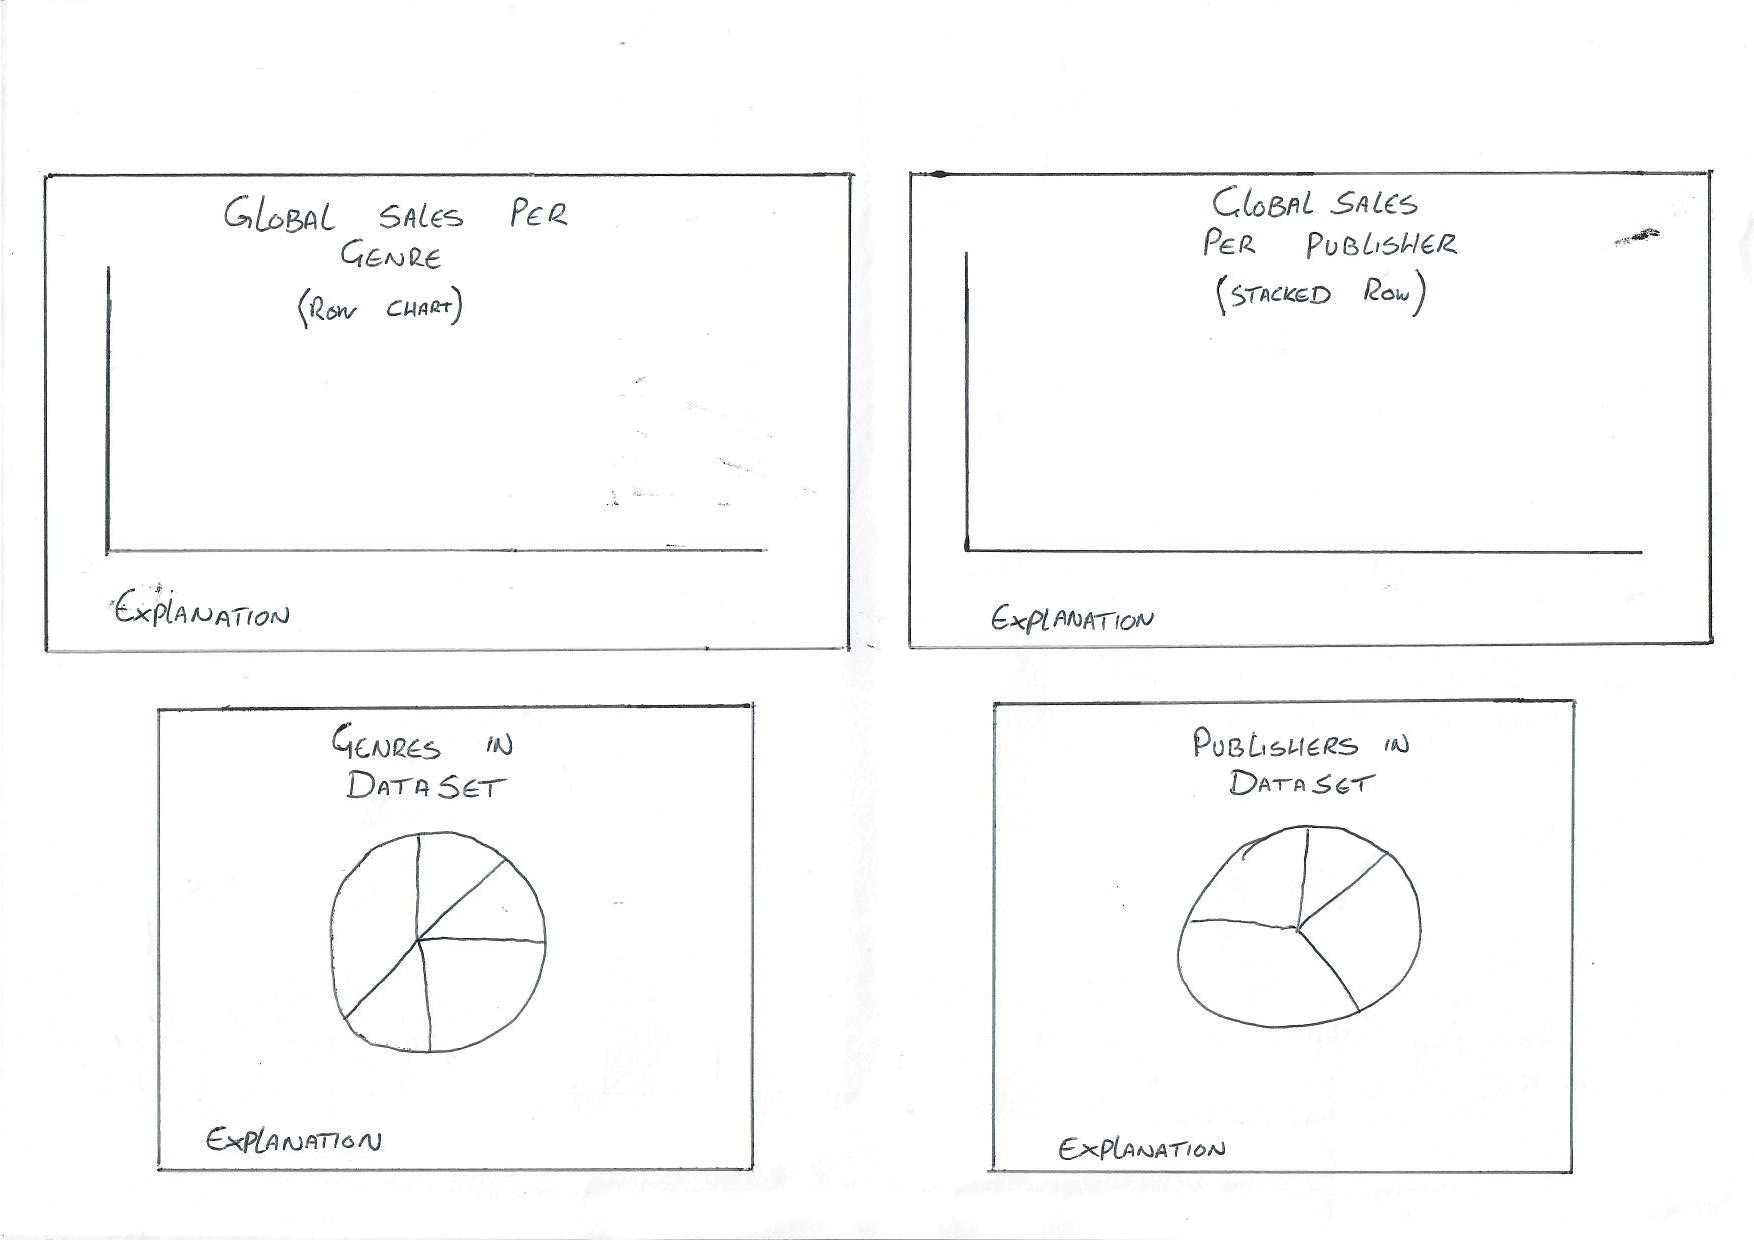 GLOBAL SALES PER
GENRE
(ROW CHART)
EXPLANATION
GLOBAL SALES
PER PUBLISHER
(STACKED ROW)
EXPLANATION
GENRES IN
DATASET
EXPLANATION
PUBLISHERS IN
DATASET
EXPLANATION